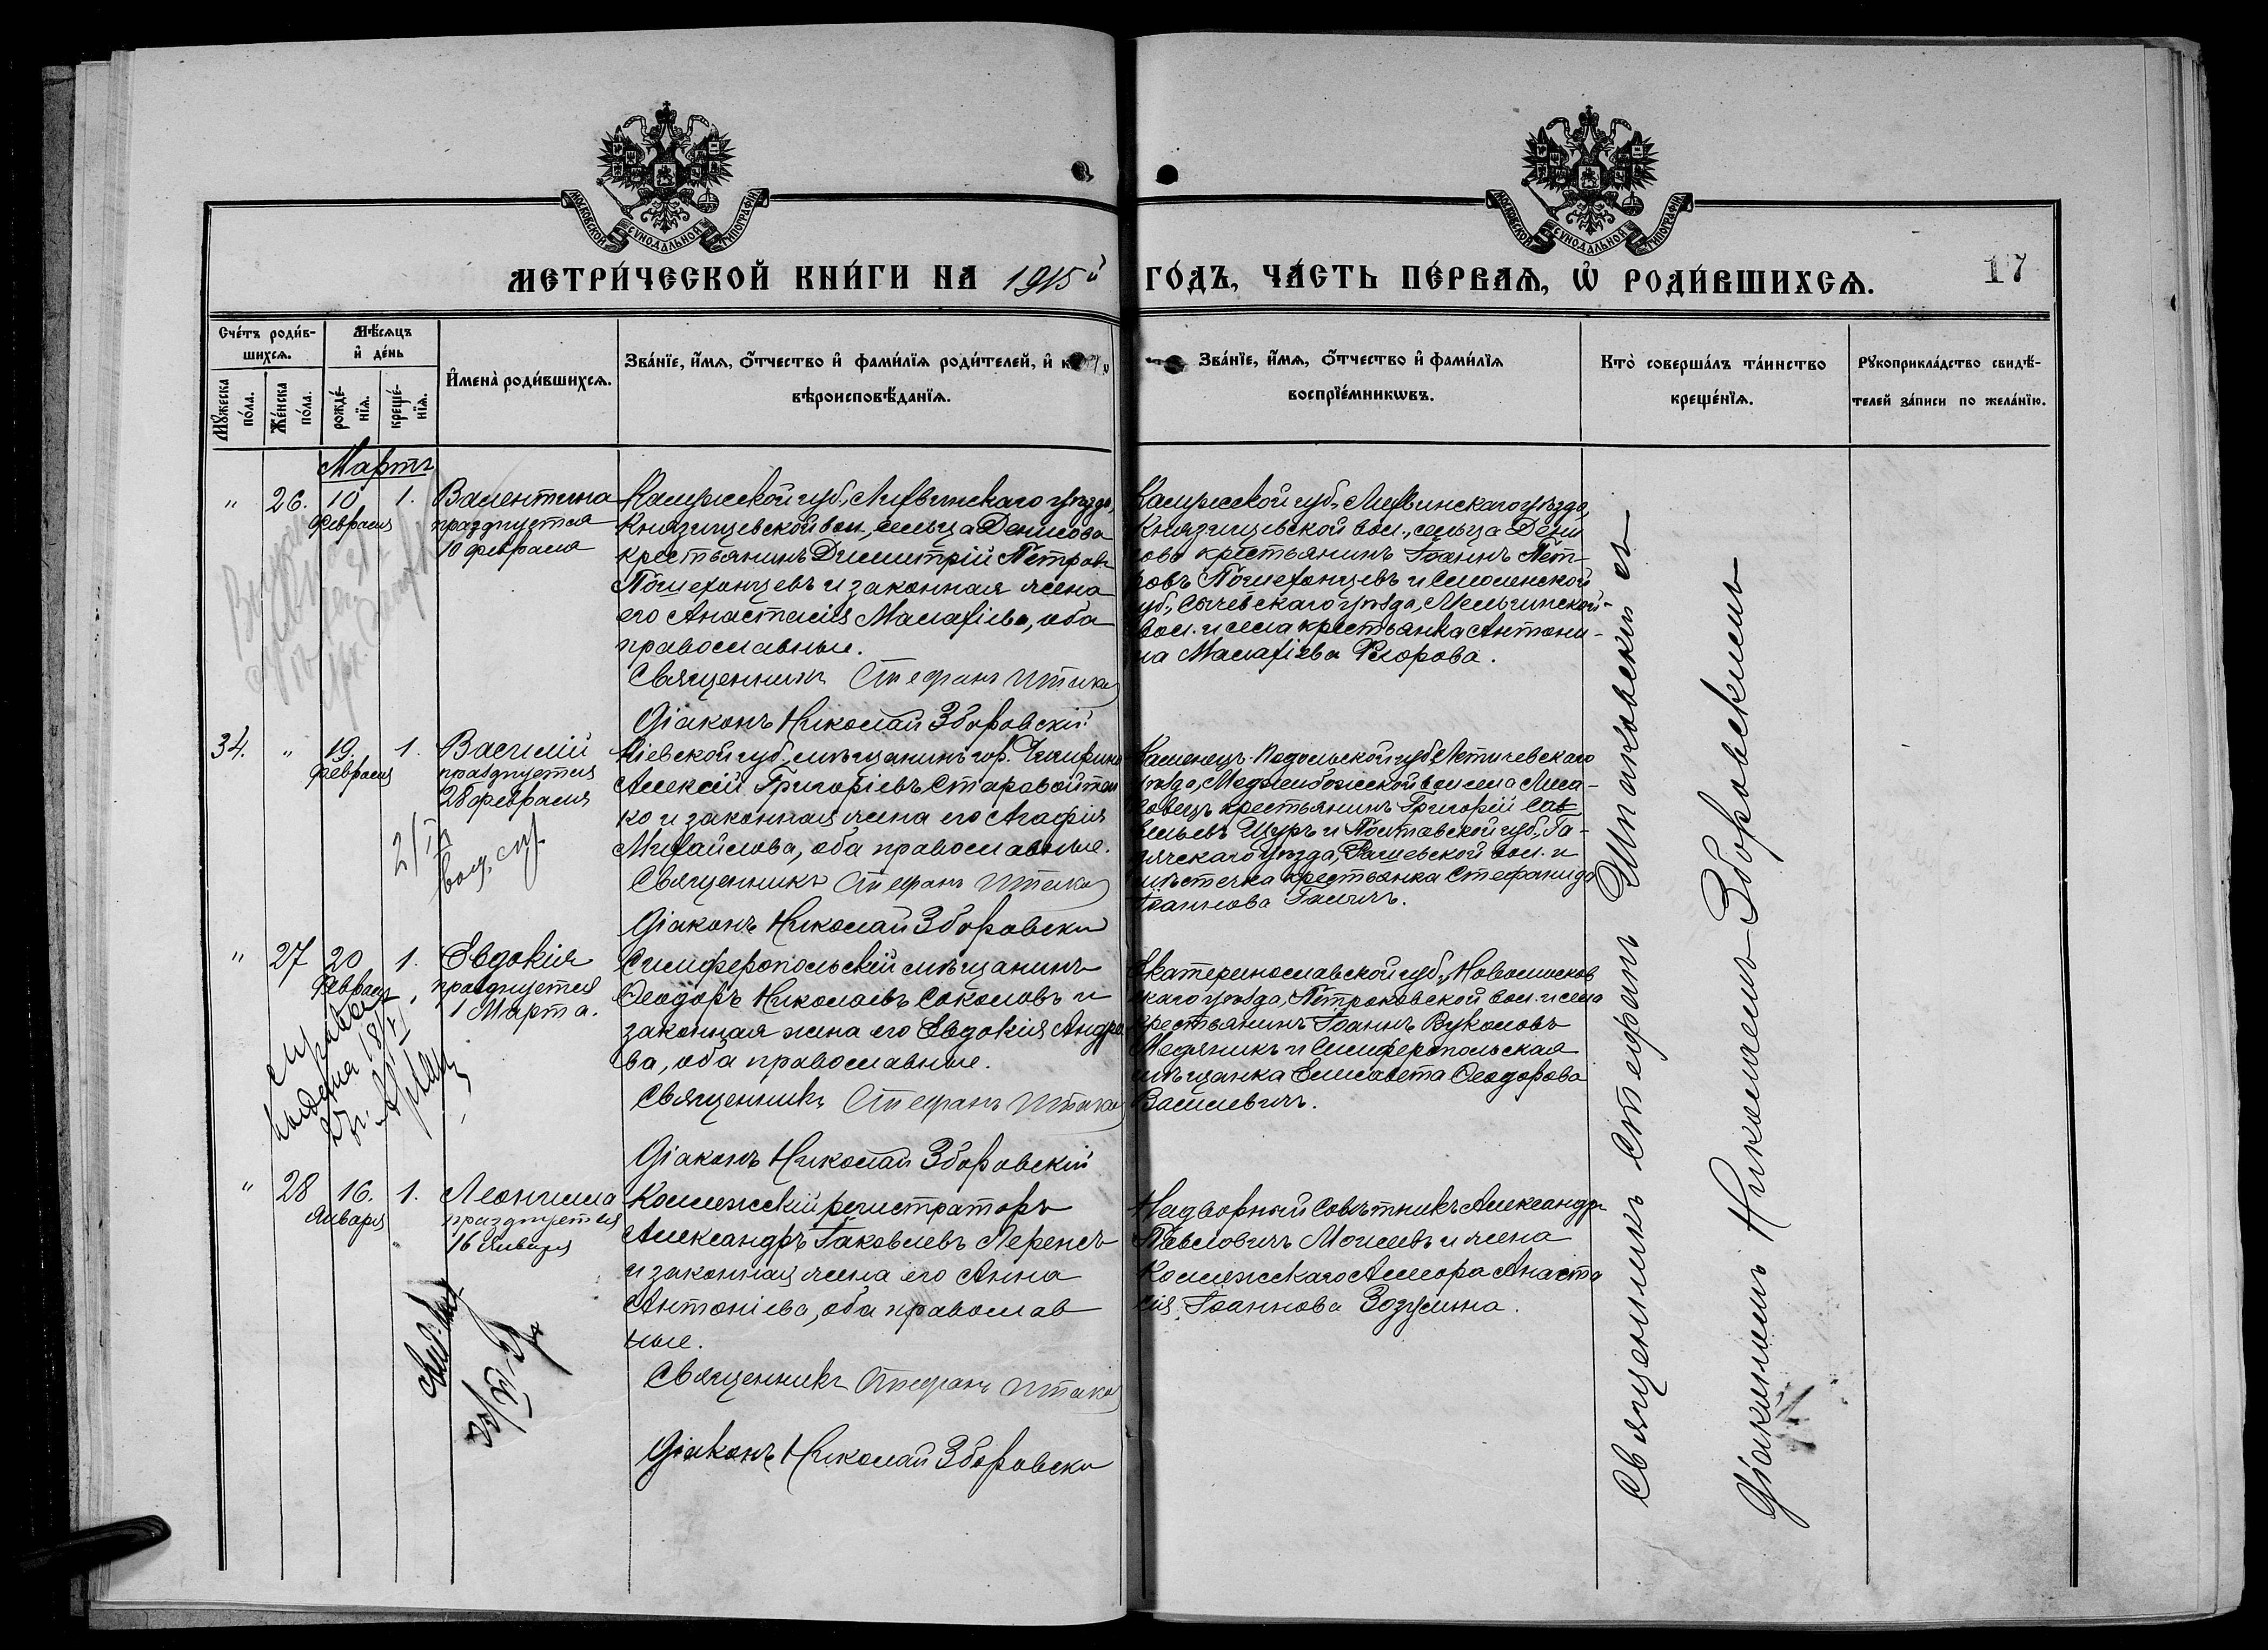 МОСКОВСКОЙ СУНОДАЛЬНОЙ ТИПОГРАФІИ
МОСКОВСКОЙ СУНОДАЛЬНОЙ ТИПОГРАФІИ
МЕТРИ́ЧЕСКОЙ КНИ́ГИ НА 1915й ГО́ДЪ, ЧА́СТЬ ПЕ́РВАЯ, Ѡ РОДИ́ВШИХСЯ.
17
Сче́тъ роди́в-
шихся.
Мꙋжеска
по́ла.
Же́нска
по́ла.
Мѣ́сяцъ
и де́нь
рожде́-
нїя.
креще́-
нїя.
Имена̀ роди́вшихся.
Зва́нїе, и́мя, ѻ́тчество и фами́лїя роди́телей, и
вѣроисповѣ́данїя.
Зва́нїе, и́мя, ѻ́тчество и фами́лїя
воспрїе́мникѡвъ.
Кто̀ соверша́лъ та́инство
креще́нїя.
Рꙋкоприкла́дство свидѣ́-
телей за́писи по жела́нїю.
Мартъ
" 26. 10 1.
Февраля
Валентина
празднуется
10 февраля
Калужской губ., Лихвинскаго уѣзда,
Князищевской вол., сельца Денисова
крестьянинъ Димитрій Петровъ
Пошехонцевъ и законная жена
его Анастасія Малахіева, оба
православные.
Священникъ Стефанъ
Діаконъ Николай Зборовскій
Калужской губ., Лихвинскаго уѣзда,
Князищевской вол., сельца Дени
сова крестьянинъ Іоаннъ Пет-
ровъ Пошехонцевъ и Смоленской
губ., Сычевскаго уѣзда,
вол. и села крестьянка Антони-
на Малахіева Флорова.
34. " 19. 1.
Февраля
Василій
празднуется
28 февраля
Кіевской губ., мѣщанинъ гор. Чигирина
Алексій Григоріевъ Старовойтен
ко и законная жена его Агафія
Михайлова, оба православные.
Священникъ Стефанъ
Діаконъ Николай Зборовскій
Каменецъ-Подольской губ. Летичевскаго
уѣзда, Меджибожской вол. села Лиса-
говецъ крестьянинъ Григорій Сав
ельевъ Щуръ и Полтавской губ., Га-
дячскаго уѣзда, Рашевской вол. и
мѣстечка крестьянка Стефанида
Іоаннова
" 27 20 1.
Февраля
Евдокія
празднуется
1 Марта.
Симферопольскій мѣщанинъ
Ѳеодоръ Николаевъ Соколовъ и
законная жена его Евдокія Андре
ва, оба православные.
Священникъ Стефанъ
Діаконъ Николай Зборовскій
Екатеринославской губ., Новомосков
скаго уѣзда, вол. и села
крестьянинъ Іоаннъ Вуколовъ
Медяникъ и Симферопольская
мѣщанка Елисавета Ѳеодорова
Василевичъ.
" 28 16. 1.
Января
Леонилла
празднуется
16 Января
Коллежскій регистраторъ
Александръ Іаковлевъ
и законная жена его Анна
Антоніева, оба православ
ные.
Священникъ Стефанъ
Діаконъ Николай Зборовскій
Надворный Совѣтникъ Александръ
Павловичъ и жена
Коллежскаго Ассесора Анаста
сія Іоаннова Зозулина.
Священникъ Стефанъ съ
Діакономъ Николаемъ Зборовскимъ